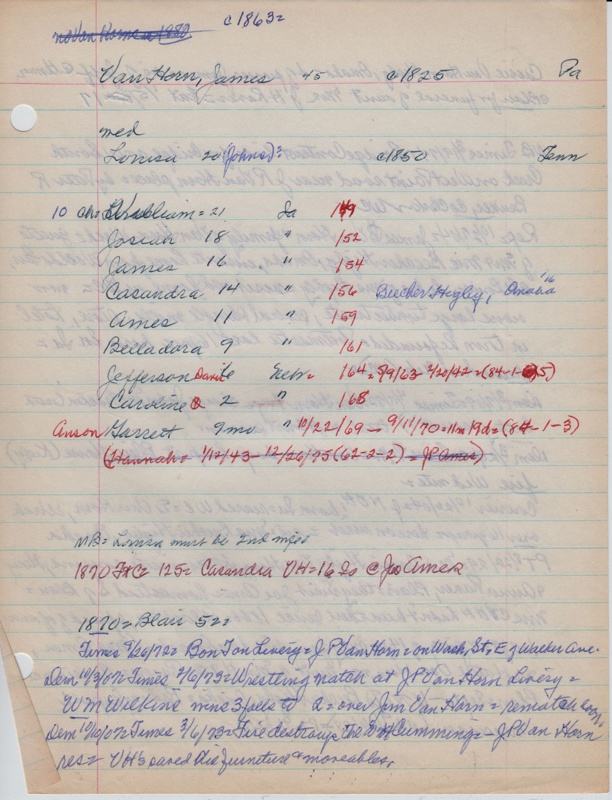 c1863=
no Van Horne in 1880
Van Horn, James 45 c1825 Pa
med
Louisa 20 (Johns): c1850 Tenn
10 ch= William = 21 Ia 149
Josiah 18 " 152
James 16 " 154
Casandra 14 " 156 Beecher Higby, Omaha '16
Ames 11 " 159
Belladora 9 " 161
Jefferson Davis 6 Nebr= 164= 7/20/42=(84-1-5)
Caroline 2 " 168
Anson Garrett 9mo " 10/22/69 - 9/11/70=11m 19d=(84-1-3)
(Hannah= 1/12/43-12/26/75(62-2-2) = JP Ames)
NB= Louisa must be 2nd
1870 = 125= Casandra VH=16 Ia @ Jas Ames
1870=Blair 522
Times 9/26/72= Bon Ton Livery= J P Van Horn= on Wash, St, E of Walker Ave.
Dem 10/3/07= Times 2/6/73=Wrestling match at J P Van Horn Livery=
W M Wilkins wins 3 falls to 2= over Jim Van Horn = rematch
Dem 10/10/07= Times 3/6/73=Fire destroys the Cummings- J P Van Horn
res= VH's saved the furniture & moveables,